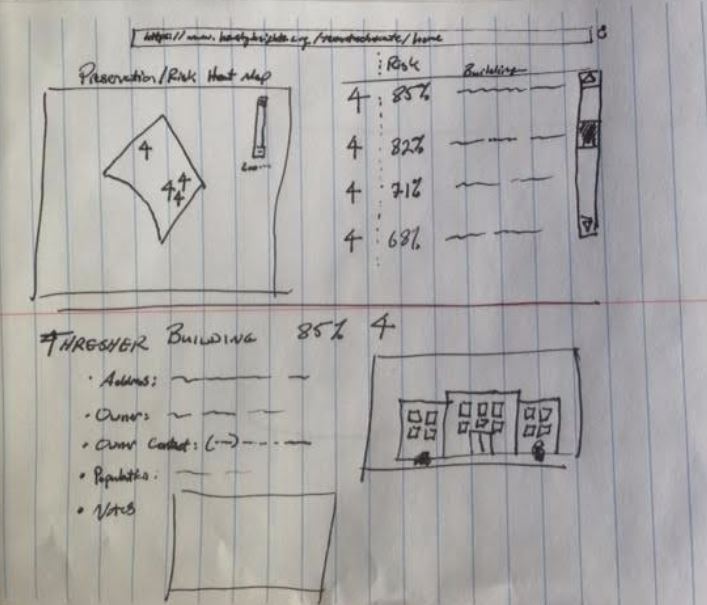 https://www. /home
Preservation/Risk Heat Map
4
4 4
4
Risk Building
4 85%
4 82%
4 71%
4 68%
THRESHER BUILDING 85% 4
• Address:
• Owner:
• Owner Contact: (--)
• Population:
• Notes